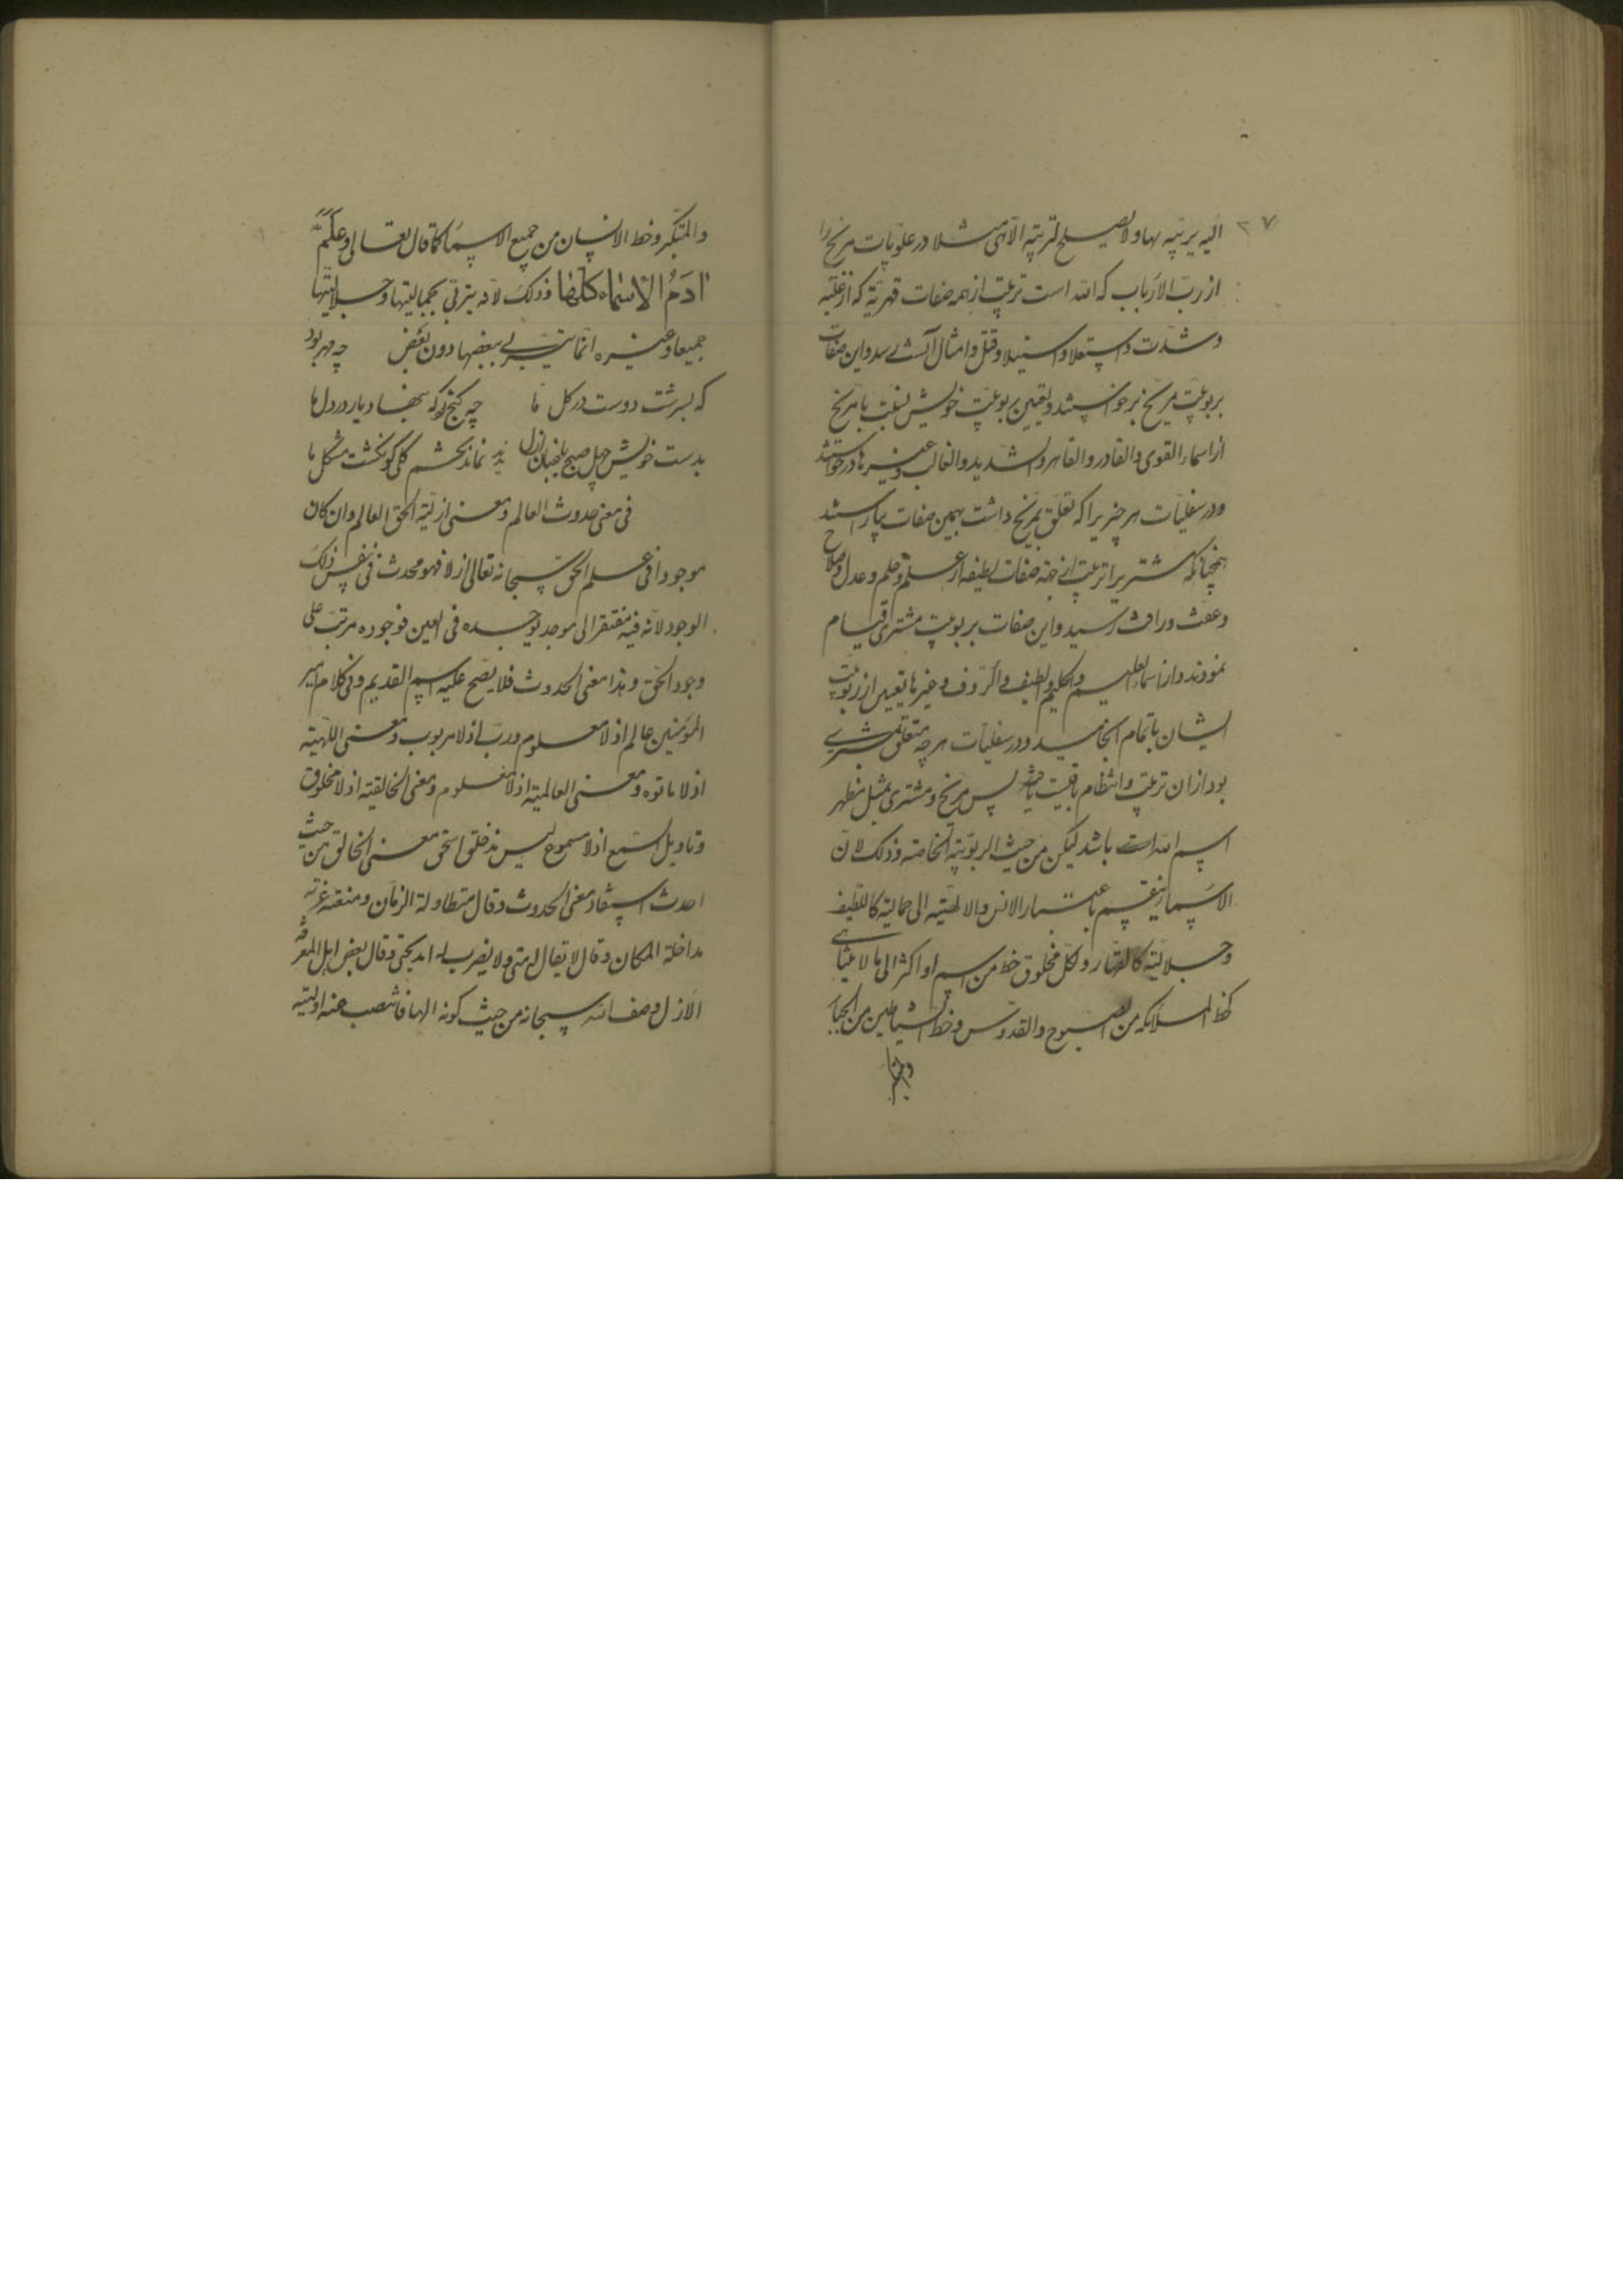 ۲۷
الیه یربیه بها ولا یصلح لتربیته الآلهی مثلا در علویات مریخ را
از رب الارباب که الله است تربیت از همه صفات قهریه که از غلبه
وشدت واستعلا واستیلا وقتل وامثال آنست رسد واین صفات
بربوبیت مریخ برخواستند وتعیین ربوبیت خویش نسبت با مریخ
از اسماء القوی والقادر والقاهر والشدید والغالب وغیرها درخواستند
ودر سفلیات هر چیزیرا که تعلق بمریخ داشت بهمین صفات بیاراستند
همچنانکه مشتریرا تربیت از جهة صفات لطیفه از علم وحلم وعدل وصلاح
وعفت ورافت رسید واین صفات بربوبیت مشتری قیام
نمودند واز اسماء العلیم والحلیم واللطیف والرؤف وغیرها تعیین از ربوبیت
ایشان باتمام انجامید ودر سفلیات هر چه متعلق بمشتری
بود ازان تربیت وانتظام یافت پس مریخ ومشتری بمثل مظهر
اسم الله است باشد لیکن من حیث الربوبیة الخاصه وذلک لان
الاسماء ینقسم باعتبار الانس والالهیه الی جمالیة کاللطیف
وجلالیة کالقهار ولکل مخلوق حظ من اسم او اکثر الی ما لا یتناهی
کحظ الملائکه من السبوح والقدوس وحظ الشیاطین من الجبار
والمتکبر
والمتکبر وحظ الانسان من جمیع الاسماء کما قال تعالی وعلّم
آدم الاسماء کلها وذلک لانه یتربی بجمالیتها وجلالیتها
جمیعا وغیره انما یتربی ببعضها دون بعض چه مهر بود
که بسرشت دوست در کل ما چه کنج بود که بنهاد یار در دل ما
بدست خویش چهل صبح باغبان ازل نماند تخم گلی کو نکشت مشکل ما
فی معنی حدوث العالم ومعنی ازلیة الحق العالم وان کان
موجودا فی علم الحق سبحانه تعالی ازلا فهو محدث فی نفس ذلک
الوجود لانه فیه مفتقر الی موجد یوجده فی العین فوجوده مرتب علی
وجود الحق وهذا معنی الحدوث فلا یصح علیه اسم القدیم وفی کلام امیر
المؤمنین عالم اذ لا معلوم ورب اذ لا مربوب ومعنی اللهیة
اذ لا مألوه ومعنی العالمیة اذ لا معلوم ومعنی الخالقیة اذ لا مخلوق
وتاویل السمع اذ لا مسموع لیس مذ خلق استحق معنی الخالق من حیث
احدث استفاد معنی الحدوث وقال متطاولة الزمان ومنقصة
مداخلة المکان وقال لا یقال له متی ولا یضرب له امد بحتی وقال بعض اهل المعرفه
الازل وصف الله سبحانه من حیث کونه الها فانتصب عنه اولیته